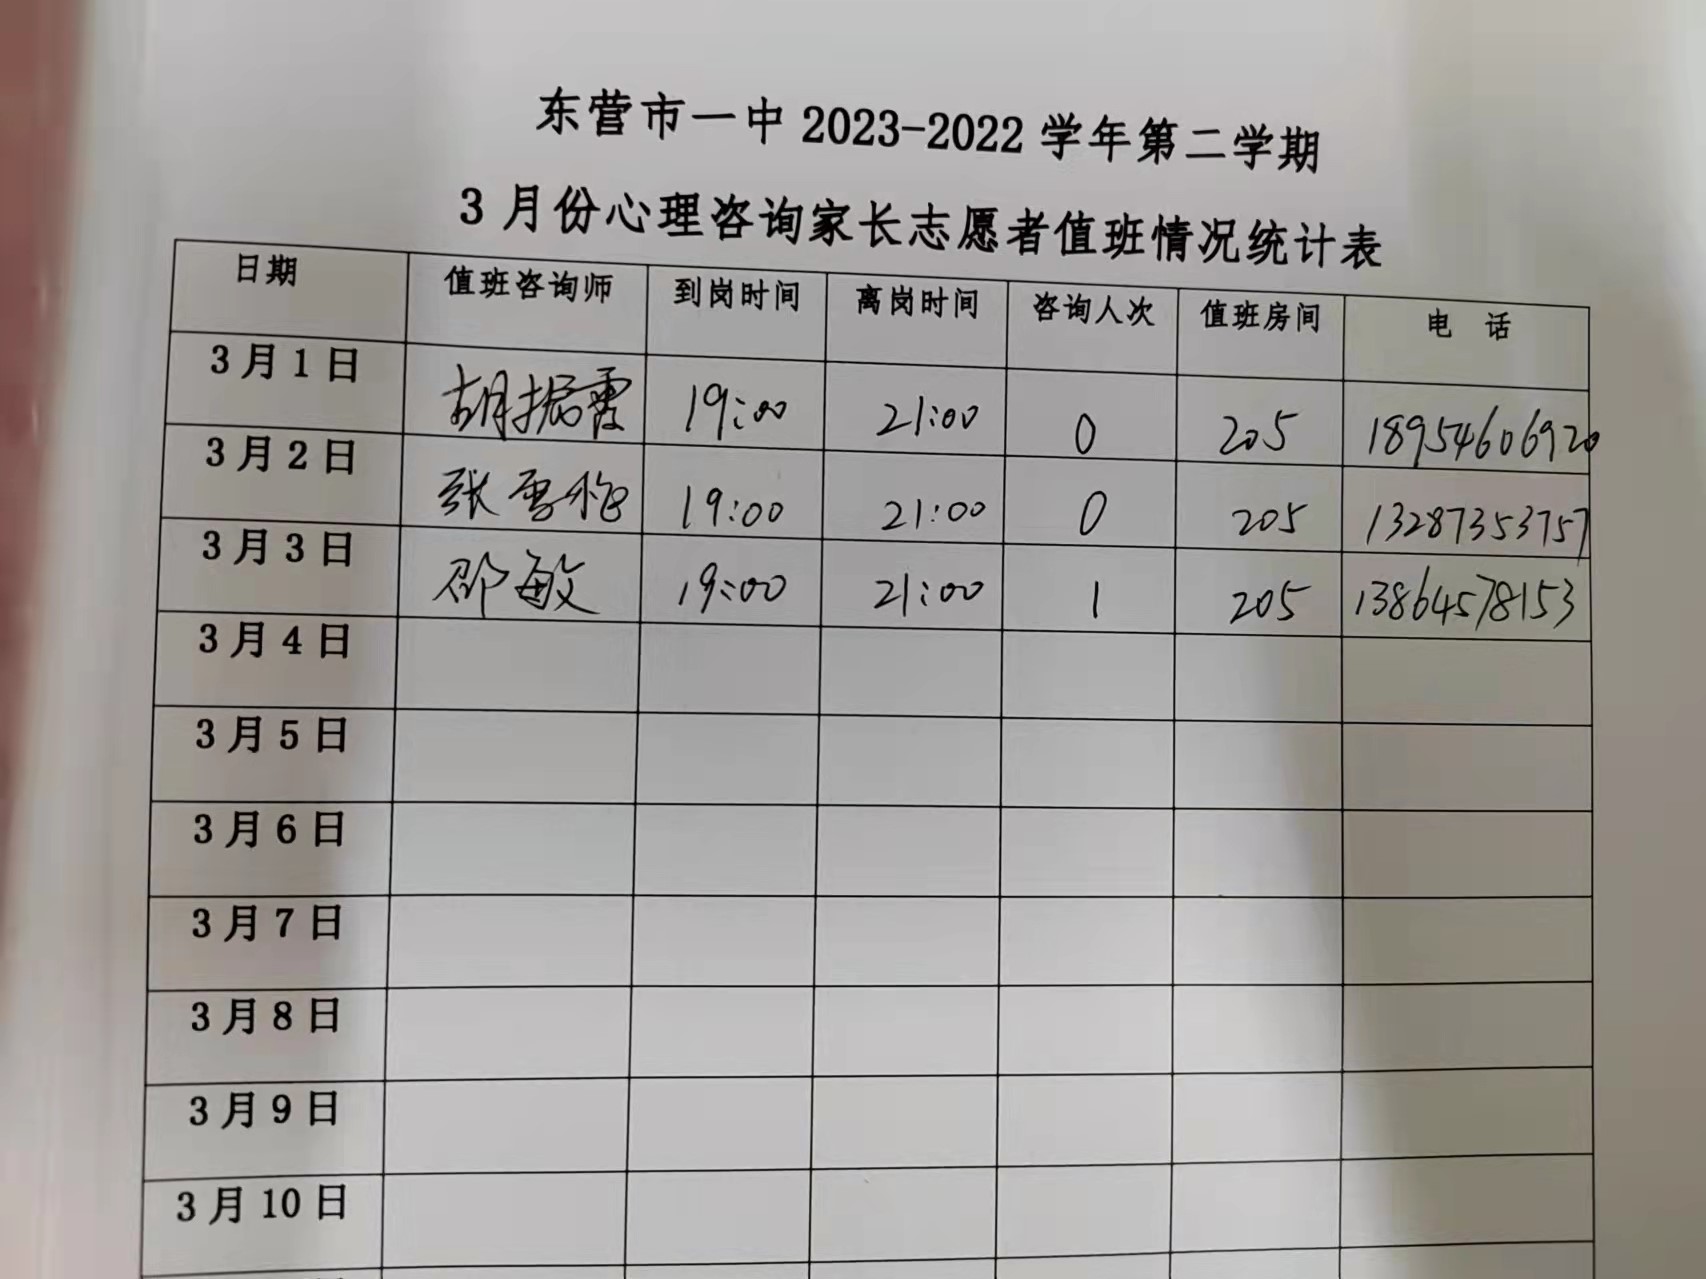 东营市一中 2023-2022 学年第二学期
3 月份心理咨询家长志愿者值班情况统计表
日期 值班咨询师 到岗时间 离岗时间 咨询人次 值班房间 电 话
3 月 1 日 胡振霞 19:00 21:00 0 205 18954606920
3 月 2 日 张雪梅 19:00 21:00 0 205 13287353757
3 月 3 日 邵敏 19:00 21:00 1 205 13864578153
3 月 4 日
3 月 5 日
3 月 6 日
3 月 7 日
3 月 8 日
3 月 9 日
3 月 10 日